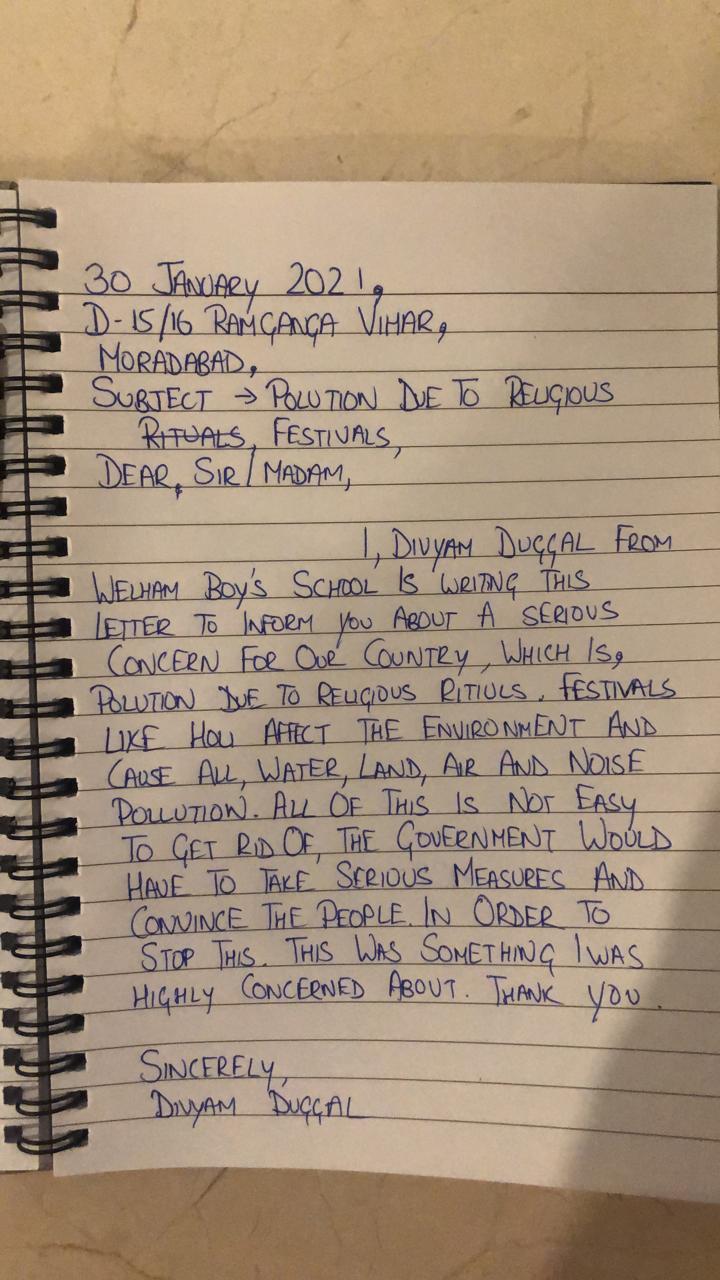 30 JANUARY 2021,
D-15/16 RAMGANGA VIHAR,
MORADABAD,
SUBJECT → POLUTION DUE TO RELIGIOUS
RITUALS, FESTIVALS,
DEAR, SIR/MADAM,
I, DIVYAM DUGGAL FROM
WELHAM BOY'S SCHOOL IS WRITNG THIS
LETTER TO INFORM YOU ABOUT A SERIOUS
CONCERN FOR OUR COUNTRY, WHICH IS,
POLUTION DUE TO RELIGIOUS RITIULS. FESTIVALS
LIKE HOLI AFFECT THE ENVIRONMENT AND
CAUSE ALL, WATER, LAND, AIR AND NOISE
POLLUTION. ALL OF THIS IS NOT EASY
TO GET RID OF, THE GOVERNMENT WOULD
HAVE TO TAKE SERIOUS MEASURES AND
CONVINCE THE PEOPLE. IN ORDER TO
STOP THIS. THIS WAS SOMETHING I WAS
HIGHLY CONCERNED ABOUT. THANK YOU.
SINCERELY,
DIVYAM DUGGAL